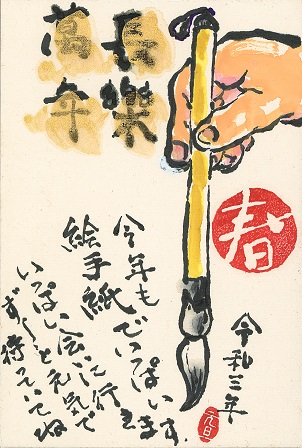 長樂
萬年
春
令和三年
元旦
今年も
絵手紙でいっぱい
いっぱい会いに行きます
ずーっと元気で
待っていてね